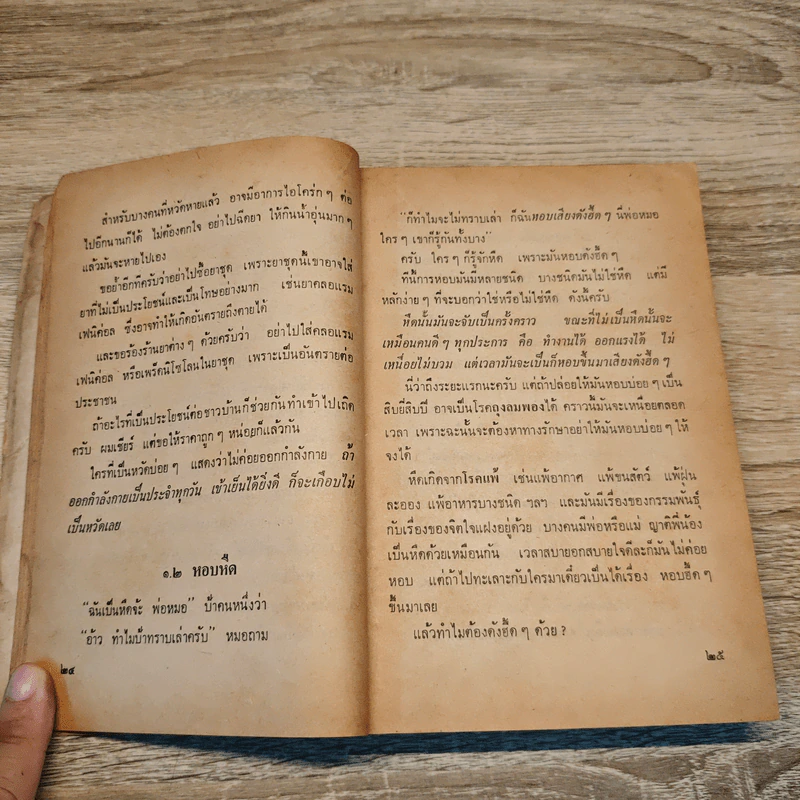 สำหรับบางคนที่หวัดหายแล้ว อาจมีอาการไอโคร่ก ๆ ต่อ
ไปอีกนานก็ได้ ไม่ต้องตกใจ อย่าไปฉีดยา ให้กินน้ำอุ่นมาก ๆ
แล้วมันจะหายไปเอง
ขอย้ำอีกทีครับว่าอย่าไปซื้อยาชุด เพราะยาชุดนี้เขาอาจใส่
ยาที่ไม่เป็นประโยชน์และเป็นโทษอย่างมาก เช่นยาคลอแรม
เฟนิค่อล ซึ่งอาจทำให้เกิดอันตรายถึงตายได้
และขอร้องร้านยาต่าง ๆ ด้วยครับว่า อย่าไปใส่คลอแรม
เฟนิค่อล หรือเพร็ดนิโซโลนในยาชุด เพราะเป็นอันตรายต่อ
ประชาชน
ถ้าอะไรที่เป็นประโยชน์ต่อชาวบ้านก็ช่วยกันทำเข้าไปเถิด
ครับ ผมเชียร์ แต่ขอให้ราคาถูก ๆ หน่อยก็แล้วกัน
ใครที่เป็นหวัดบ่อย ๆ แสดงว่าไม่ค่อยออกกำลังกาย ถ้า
ออกกำลังกายเป็นประจำทุกวัน เข้าเย็นได้ยิ่งดี ก็จะเกือบไม่
เป็นหวัดเลย
๑.๒ หอบหืด
"ฉันเป็นหืดจ้ะ พ่อหมอ" ป้าคนหนึ่งว่า
"อ้าว ทำไมป้าทราบเล่าครับ" หมอถาม
๒๔
"ก็ทำไมจะไม่ทราบเล่า ก็ฉันหอบเสียงดังฮื้ด ๆ นี่พ่อหมอ
ใคร ๆ เขาก็รู้กันทั้งบาง"
ครับ ใคร ๆ ก็รู้จักหืด เพราะมันหอบดังฮื้ด ๆ
ทีนี้การหอบมันมีหลายชนิด บางชนิดมันไม่ใช่หืด แต่มี
หลักง่าย ๆ ที่จะบอกว่าใช่หรือไม่ใช่หืด ดังนี้ครับ
หืดนั้นมันจะจับเป็นครั้งคราว ขณะที่ไม่เป็นหืดนั้นจะ
เหมือนคนดี ๆ ทุกประการ คือ ทำงานได้ ออกแรงได้ ไม่
เหนื่อยไม่บวม แต่เวลามันจะเป็นก็หอบขึ้นมาเสียงดังฮื้ด ๆ
นี่ว่าถึงระยะแรกนะครับ แต่ถ้าปล่อยให้มันหอบบ่อย ๆ เป็น
สิบยี่สิบปี อาจเป็นโรคถุงลมพองได้ คราวนี้มันจะเหนื่อยตลอด
เวลา เพราะฉะนั้นจะต้องหาทางรักษาอย่าให้มันหอบบ่อย ๆ ให้
จงได้
หืดเกิดจากโรคแพ้ เช่นแพ้อากาศ แพ้ขนสัตว์ แพ้ฝุ่น
ละออง แพ้อาหารบางชนิด ฯลฯ และมันมีเรื่องของกรรมพันธุ์
กับเรื่องของจิตใจแฝงอยู่ด้วย บางคนมีพ่อหรือแม่ ญาติพี่น้อง
เป็นหืดด้วยเหมือนกัน เวลาสบายอกสบายใจดีละก็มันไม่ค่อย
หอบ แต่ถ้าไปทะเลาะกับใครมาเดี๋ยวเป็นได้เรื่อง หอบฮื้ด ๆ
ขึ้นมาเลย
แล้วทำไมต้องดังฮื้ด ๆ ด้วย ?
๒๕